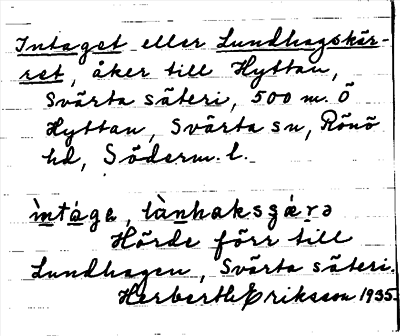 Intaget eller Lundhagskär-
ret, åker till Hyttan,
Svärta säteri, 500 m. Ö
Hyttan, Svärta sn, Rönö
hd, Söderm. l.
ìntágə, lànhaksʒǽrə
Hörde förr till
Lundhagen, Svärta säteri.
Herbert Eriksson 1935.